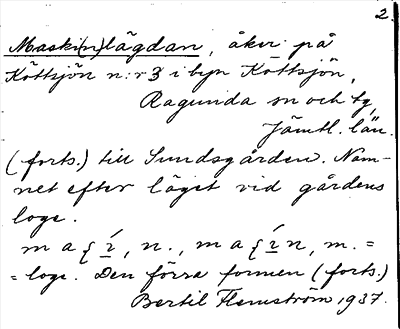 2.
Maski(n)lägdan, åker på
Köttsjön n:r 3 i byn Köttsjön,
Ragunda sn och tg,
Jämtl. län.
(forts.) till Sundsgården. Nam-
net efter läget vid gårdens
loge.
m a ʃ í, n., m a ʃ í n, m. =
= loge. Den förra formen (forts.)
Bertil Flemström 1937.